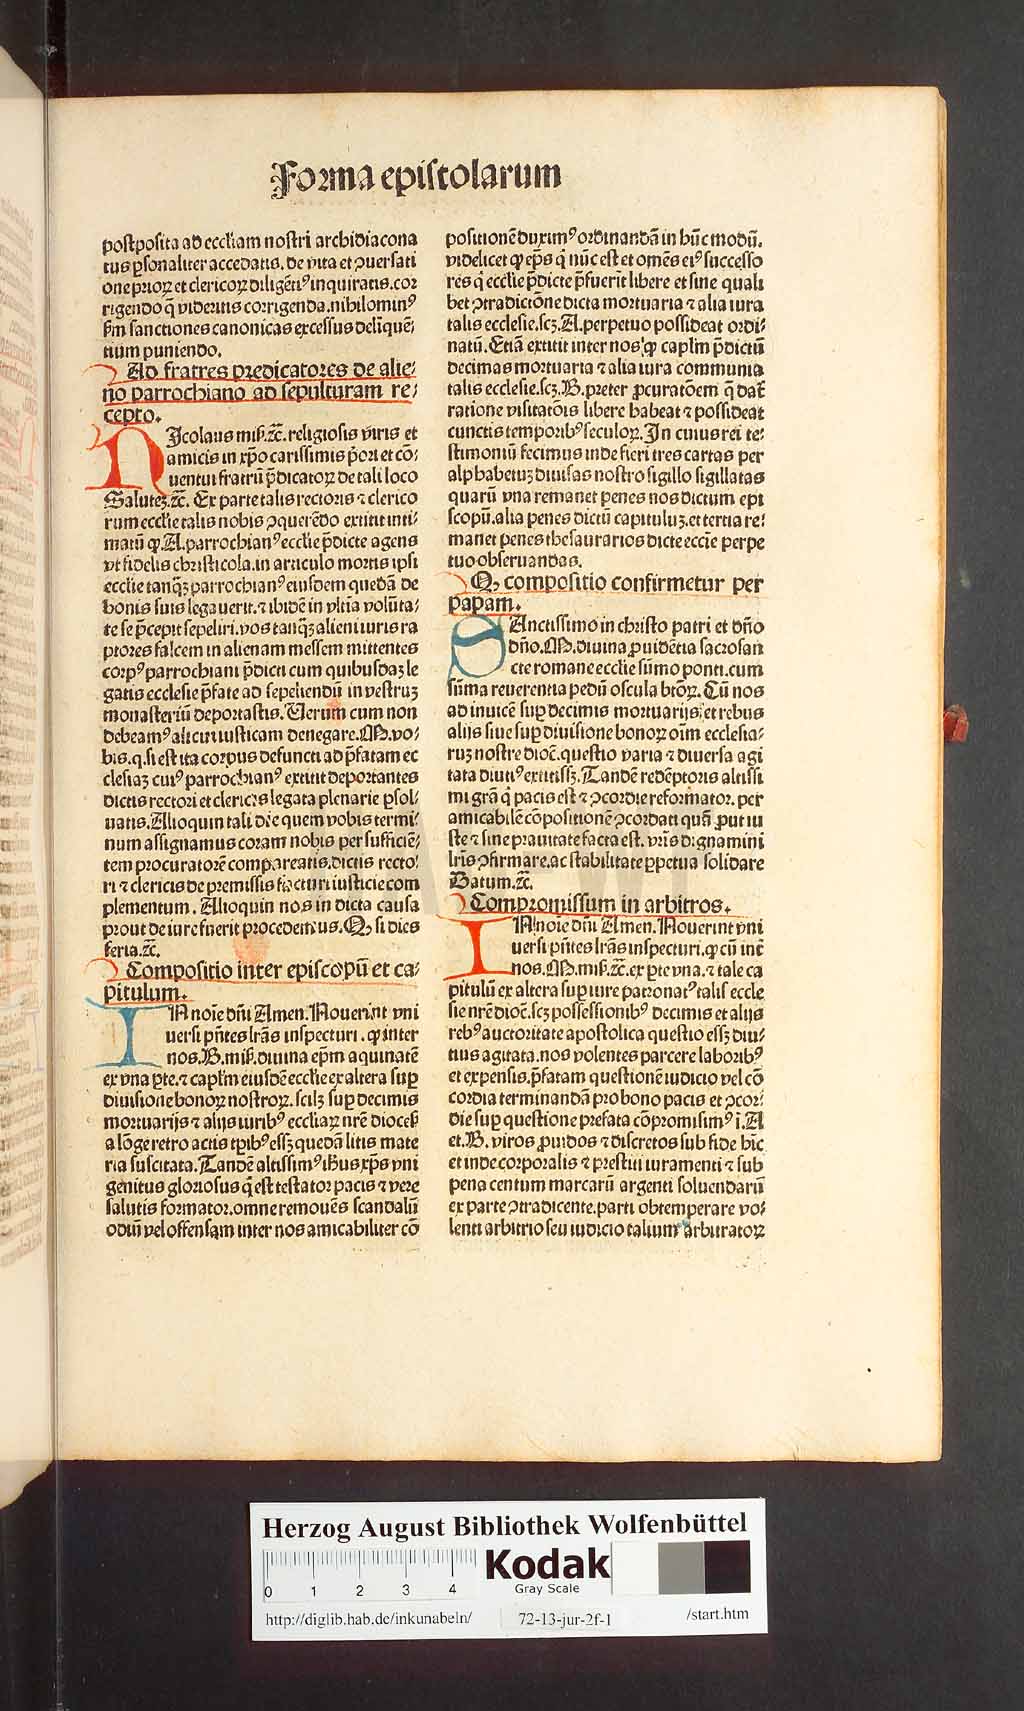 Forma epistolarum
postposita ad eccliam nostri archidiacona
tus ꝑsonaliter accedatis. de vita et ꝯuersati
one prioꝝ et clericoꝝ diligẽtiꝰ inquiratis. cor
rigendo q̃ videritis corrigenda. nihilominꝰ
ẜm sanctiones canonicas excessus deliquẽ⸗
tium puniendo.
Ad fratres predicatores de alie⸗
no parrochiano ad sepulturam re⸗
cepto.
NIcolaus mis̃. ⁊c̃. religiosis viris et
amicis in xp̃o carissimis p̃ori et cõ⸗
uentui fratrũ p̃dicatoꝝ de tali loco
Salutez. ⁊c̃. Ex parte talis rectoris ⁊ clerico
rum ecclie talis nobis ꝯquerẽdo extitit inti⸗
matũ ꝙ. A. parrochianꝰ ecclie p̃dicte agens
vt fidelis christicola. in articulo mortis ipsi
ecclie tanq̃ꝫ parrochianꝰ eiusdem quedã de
bonis suis legauerit. ⁊ ibidẽ in vltia volũta⸗
te se p̃cepit sepeliri. vos tanq̃ꝫ alieni iuris ra
ptores falcem in alienam messem mittentes
corpꝰ parrochiani p̃dicti cum quibusdaꝫ le
gatis ecclesie p̃fate ad sepeliendũ in vestruꝫ
monasteriũ deportastis. Uerum cum non
debeamꝰ alicui iusticam denegare. M. vo⸗
bis. q. si est ita corpus defuncti ad p̃fatam ec
clesiaꝫ cuiꝰ parrochianꝰ extitit deportantes
dictis rectori et clericis legata plenarie ꝑsol⸗
uatis. Alioquin tali die quem vobis termi⸗
num assignamus coram nobis per sufficiẽ⸗
tem procuratorẽ compareatis. dictis recto⸗
ri ⁊ clericis de premissis facturi iusticie com
plementum. Alioquin nos in dicta causa
prout de iure fuerit procedemus. Ꝙ si dies
feria. ⁊c̃.
Compositio inter episcopũ et ca⸗
pitulum.
IN noĩe dñi Amen. Nouerint vni
uersi pñtes lr̃as inspecturi. ꝙ inter
nos. B. mis̃. diuina ep̃m aquinatẽ
ex vna ꝑte. ⁊ caplm̃ eiusdẽ ecclie ex altera suꝑ
diuisione bonoꝝ nostroꝝ. scilꝫ suꝑ decimis
mortuarijs ⁊ alijs iuribꝰ ecclĩaꝝ nr̃e dioces̃
a lõge retro actis tp̃ibꝰ essꝫ quedã litis mate
ria suscitata. Tandẽ altissimꝰ ihus xp̃s vni
genitus gloriosus q̃ est testator pacis ⁊ vere
salutis formator. omne remouẽs scandalũ
odiũ vel offensam inter nos amicabiliter cõ
positionẽ duximꝰ ordinandã in hũc modũ.
videlicet ꝙ ep̃s q̃ nũc est et omẽs eiꝰ successo
res q̃ ecclie p̃dicte p̃fuerĩt libere et sine quali
bet ꝯtradictiõne dicta mortuaria ⁊ alia iura
talis ecclesie. scꝫ. A. perpetuo possideat ordi⸗
natũ. Etiã extitit inter nos ꝙ caplm̃ p̃dictũ
decimas mortuaria ⁊ alia iura communia
talis ecclesie. scꝫ. B. preter ꝓcuratõem q̃ dat̃
ratione visitatõis libere habeat ⁊ possideat
cunctis temporibꝰ seculoꝝ. In cuius rei te⸗
stimoniũ fecimus inde fieri tres cartas per
alphabetuꝫ diuisas nostro sigillo sigillatas
quarũ vna remanet penes nos dictum epi
scopũ. alia penes dictũ capituluꝫ. et tertia re⸗
manet penes thesaurarios dicte eccĩe perpe
tuo obseruandas.
Ꝙ compositio confirmetur per
papam.
SAnctissimo in christo patri et dño
dño. M. diuina ꝓuidẽtia sacrosan
cte romane ecclie sũmo ponti. cum
sũma reuerentia pedũ oscula btõꝝ. Cũ nos
ad inuicẽ suꝑ decimis mortuarijs et rebus
alijs siue suꝑ diuisione bonoꝝ oĩm ecclesia⸗
ruꝫ nostre dioc̃. questio varia ⁊ diuersa agi
tata diutiꝰ extitissꝫ. Tandẽ redẽptoris altissi
mi grã q̃ pacis est ⁊ ꝯcordie reformator. per
amicabilẽ cõpositionẽ ꝯcordati quã ꝓut iu
ste ⁊ sine prauitate facta est. vr̃is dignamini
lr̃is ꝯfirmare. ac stabilitate ꝑpetua solidare
Datum. ⁊c̃.
Compromissum in arbitros.
IN noĩe dñi Amen. Nouerint vni
uersi pñtes lr̃as inspecturi. ꝙ cũ int̃
nos. M. mis̃. ⁊c̃. ex ꝑte vna. ⁊ tale ca
pitulũ ex altera suꝑ iure patronatꝰ talis eccle
sie nr̃e dioc̃. scꝫ possessionibꝰ decimis et alijs
rebꝰ auctoritate apostolica questio essꝫ diu⸗
tius agitata. nos volentes parcere laboribꝰ
et expensis. p̃fatam questionẽ iudicio vel cõ
cordia terminandã pro bono pacis et ꝯcor⸗
die suꝑ questione prefata cõpromisimꝰ ĩ. A
et. B. viros ꝓuidos ⁊ discretos sub fide hĩc
et inde corporalis ⁊ prestiti iuramenti ⁊ sub
pena centum marcarũ argenti soluendarũ
ex parte ꝯtradicente. parti obtemperare vo⸗
lenti arbitrio seu iudicio talium arbitratoꝝ
Herzog August Bibliothek Wolfenbüttel
0 1 2 3 4
Kodak
Gray Scale
http://diglib.hab.de/inkunabeln/ 72-13-jur-2f-1 /start.htm